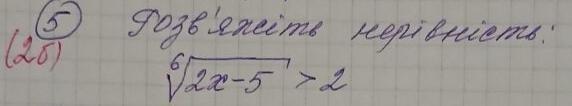 5 Розв'яжіть нерівність:
(2б)
⁶√2x-5 > 2